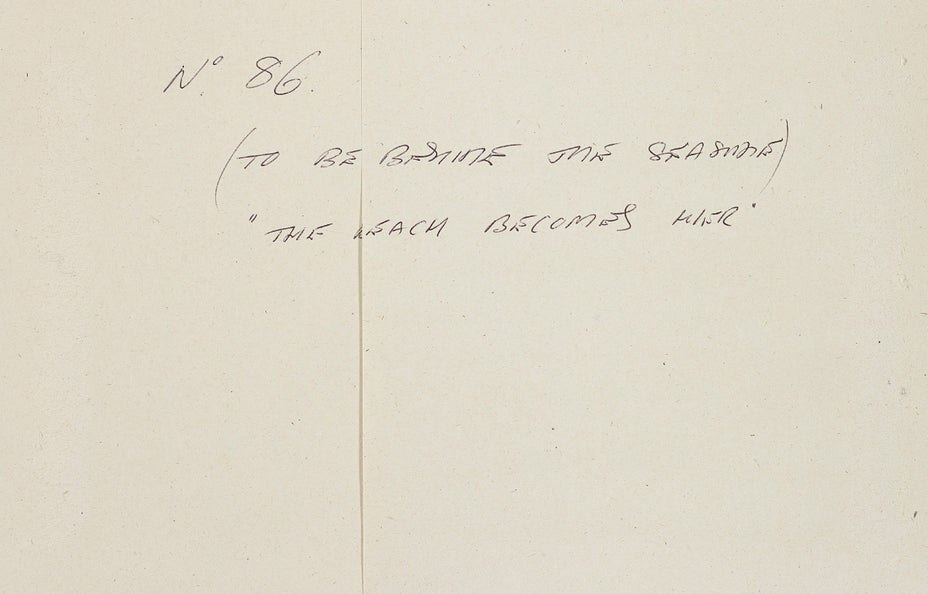 Nº 86.
(TO BE BESIDE THE SEASIDE)
"THE BECOMES HER"